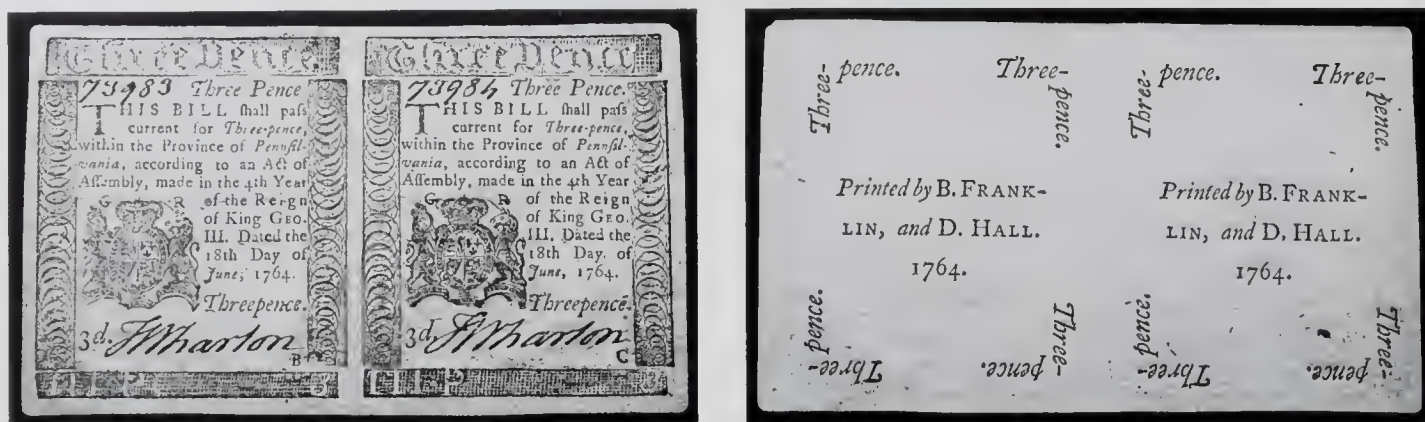 Three Pence
73983 Three Pence
THIS BILL shall pass
current for Three-pence,
within the Province of Pennsil-
vania, according to an Act of
Assembly, made in the 4th Year
G R of the Reign
of King GEO.
III. Dated the
18th Day of
June, 1764.
Threepence.
3d. Wharton
B
Three Pence
73984 Three Pence.
THIS BILL shall pass
current for Three-pence,
within the Province of Pennsil-
vania, according to an Act of
Assembly, made in the 4th Year
G R of the Reign
of King GEO.
III. Dated the
18th Day of
June, 1764.
Threepence.
3d. Wharton
C
Three-
pence.
Three-
pence.
Printed by B. FRANK-
LIN, and D. HALL.
1764.
Three-
pence.
Three-
pence.
Three-
pence.
Three-
pence.
Printed by B. FRANK-
LIN, and D. HALL.
1764.
Three-
pence.
Three-
pence.